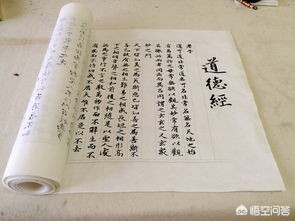 道德經
老子
道可道非常道名可名非常名無名天地之始
有名萬物之母常無欲以觀其妙常有欲以觀
其徼此兩者同出而異名同謂之玄玄之又玄眾
妙之門
天下皆知美之為美斯惡已皆知善之為善斯不
善已故有無之相生難易之相成長短之相形高
下之相傾音聲之相和前後之相隨是以聖人處
無為之事行不言之教萬物作焉而不辭生而不
有為而不恃功成而弗居夫唯不居是以不去
悟空问答